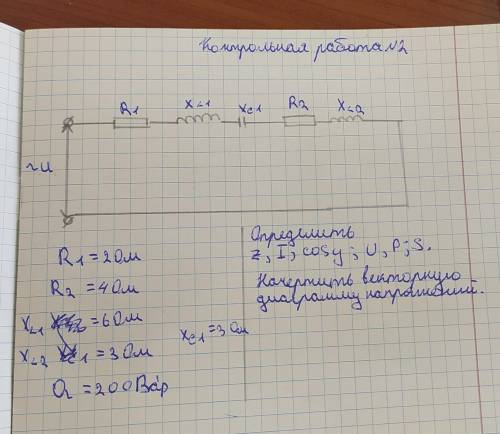 Контрольная работа N2
R1 XL1 XC1 R2 XL2
~U
R1 = 2 Ом
R2 = 4 Ом
XL1 = 6 Ом
XL2 = 3 Ом
XC1 = 3 Ом
Q = 200 Вар
Определить
Z, I; cosφ; U, P; S.
Начертить векторную
диаграмму напряжений.